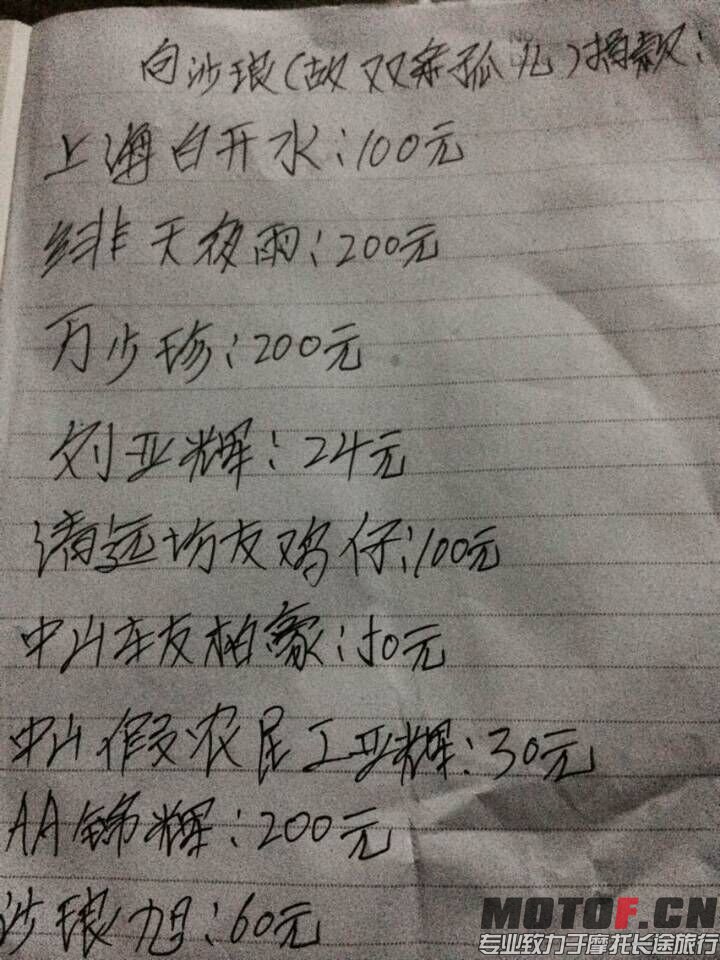 向沙琅(故双亲孤儿)捐款:
上海白开水:100元
绯天夜雨:200元
万少珍:200元
刘亚辉:24元
清远坊友鸡仔:100元
中山车友柏豪:50元
中山假农民工亚辉:30元
AA锦辉:200元
沙琅旭:60元
MOTOF.CN
专业致力于摩托长途旅行